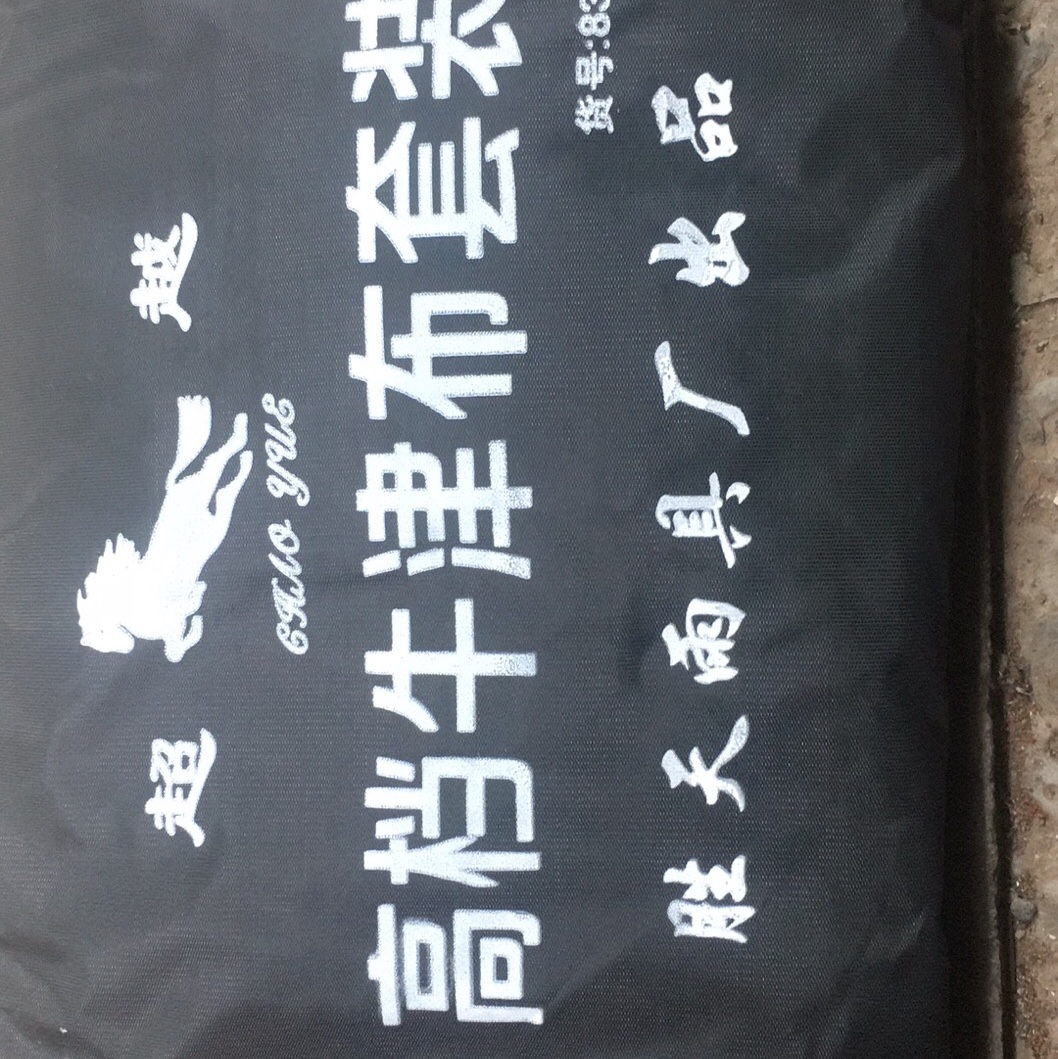 超 越
CHAO YUE
高档牛津布套装
货号:83
胜天雨具厂出品